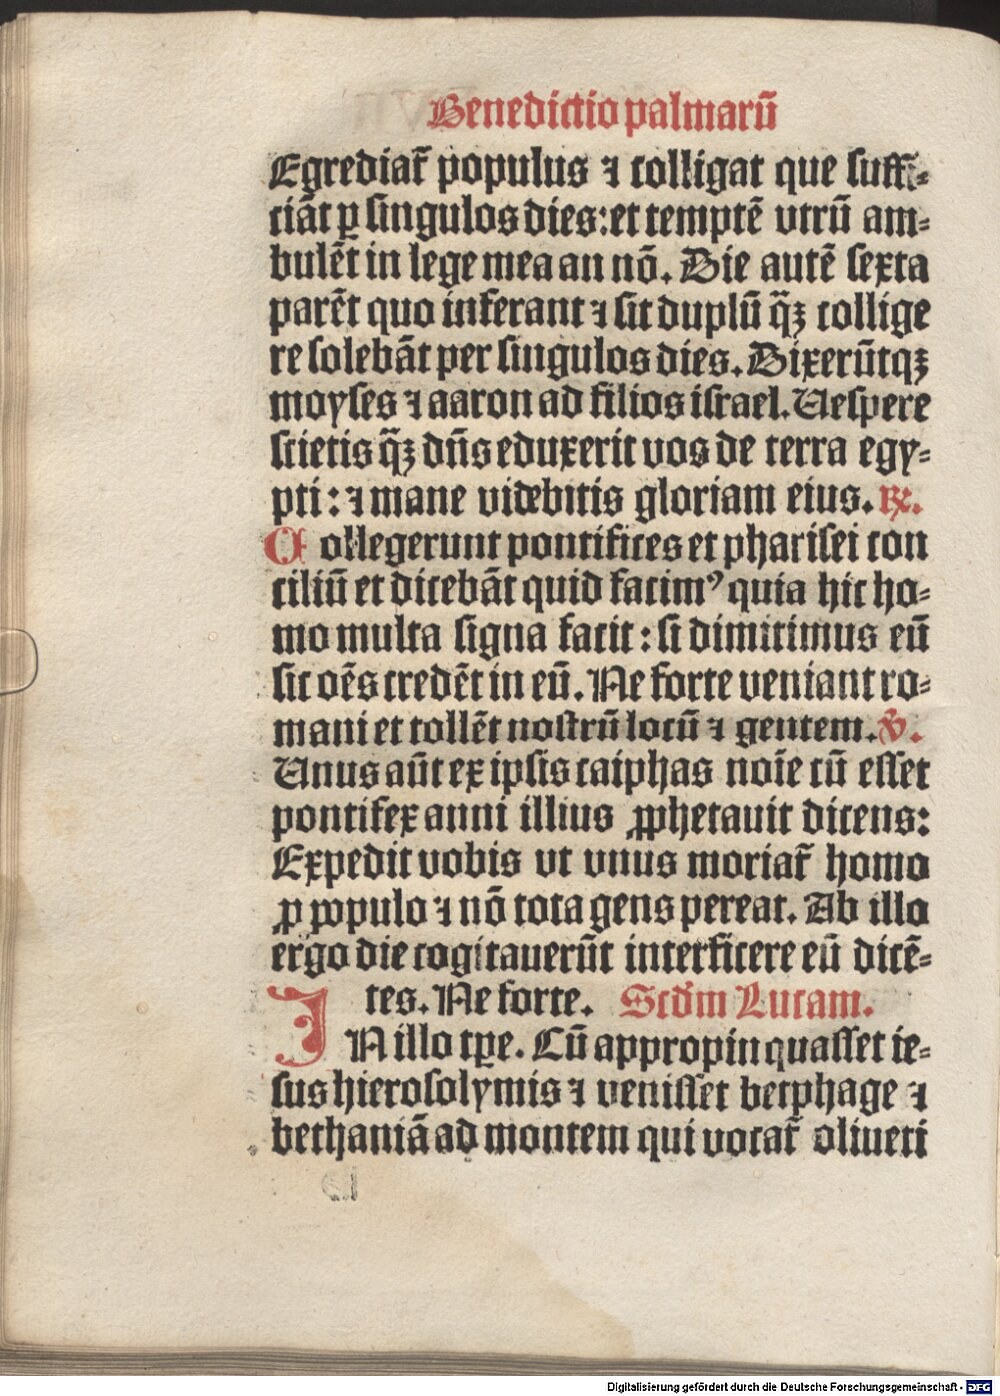 Benedictio palmarū
Egrediat᷑ populus ⁊ colligat que suffi⸗
ciāt ꝑ singulos dies: et temptē vtrū am⸗
bulēt in lege mea an nō. Die autē sexta
parēt quo inferant ⁊ sit duplū q̄ꝫ collige
re solebāt per singulos dies. Dixerūtqꝫ
moyses ⁊ aaron ad filios israel. Uespere
scietis q̄ꝫ dn̄s eduxerit vos de terra egy⸗
pti: ⁊ mane videbitis gloriam eius. ℞.
Collegerunt pontifices et pharisei con
ciliū et dicebāt quid facimꝰ quia hic ho⸗
mo multa signa facit: si dimittimus eū
sic oēs credēt in eū. Ne forte veniant ro⸗
mani et tollēt nostrū locū ⁊ gentem. ℣.
Unus aūt ex ipsis caiphas noīe cū esset
pontifex anni illius ꝓphetauit dicens:
Expedit vobis vt vnus moriat᷑ homo
ꝓ populo ⁊ nō tota gens pereat. Ab illo
ergo die cogitauerūt interficere eū dicē⸗
tes. Ne forte. Scđm Lucam.
IN illo tꝑe. Cū appropinquasset ie⸗
sus hierosolymis ⁊ venisset betphage ⁊
bethaniā ad montem qui vocat᷑ oliueti
Digitalisierung gefördert durch die Deutsche Forschungsgemeinschaft - DFG